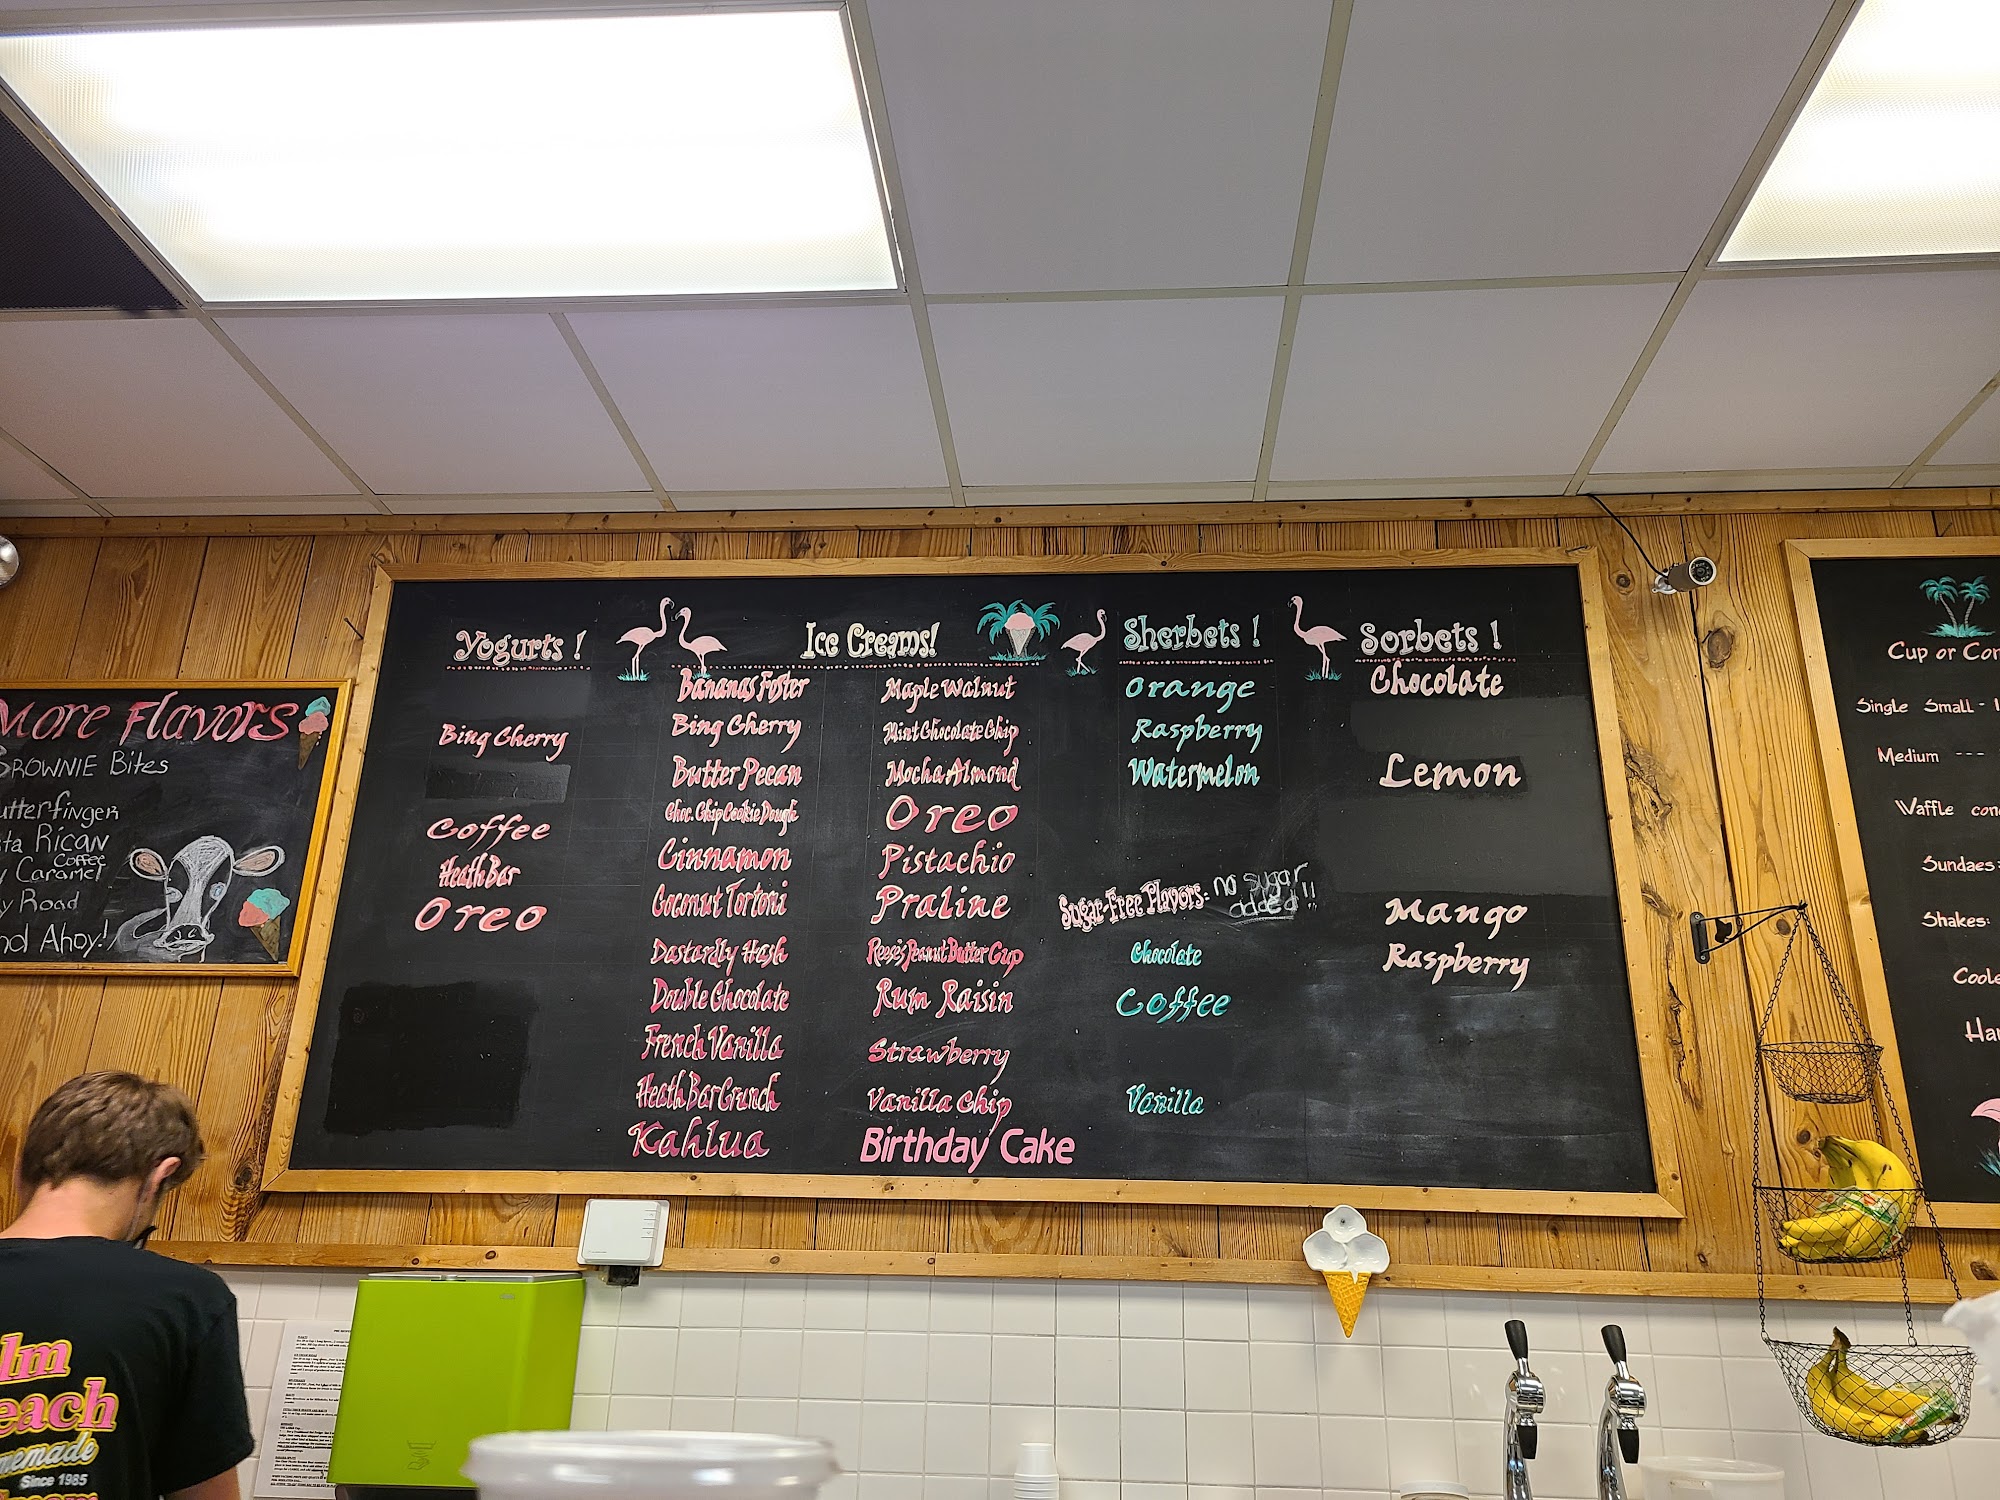 More Flavors
Brownie Bites
utterfinger
ta Rican
Coffee
y Caramel
y Road
Ahoy!
Yogurts !
Bing Cherry
Coffee
Heath Bar
Oreo
Ice Creams!
Bananas Foster
Bing Cherry
Butter Pecan
Choc. Chip Cookie Dough
Cinnamon
Coconut Tortoni
Dastardly Hash
Double Chocolate
French Vanilla
Heath Bar Crunch
Kahlua
Maple Walnut
Mint Chocolate Chip
Mocha Almond
Oreo
Pistachio
Praline
Reese's Peanut Butter Cup
Rum Raisin
Strawberry
Vanilla Chip
Birthday Cake
Sherbets !
Orange
Raspberry
Watermelon
Sugar-Free Flavors: no sugar
added!!
Chocolate
Coffee
Vanilla
Sorbets !
Chocolate
Lemon
Mango
Raspberry
Cup or Con
Single Small -
Medium ---
Waffle con
Sundaes:
Shakes:
Coole
Ha
lm
each
memade
Since 1985